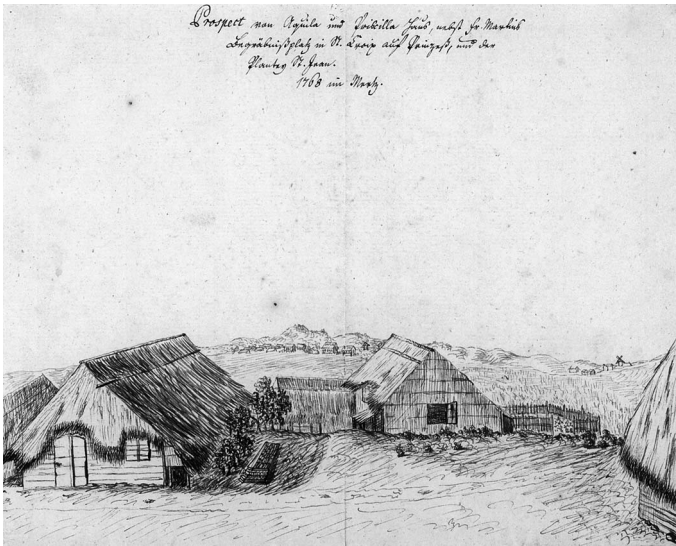 Prospect von Aquila und Priscilla Haus, nebst Fr. Martins
Begräbnißplatz in St. Croix auf Princeß, und der
Plantey St. Jean.
1768 im Mertz.